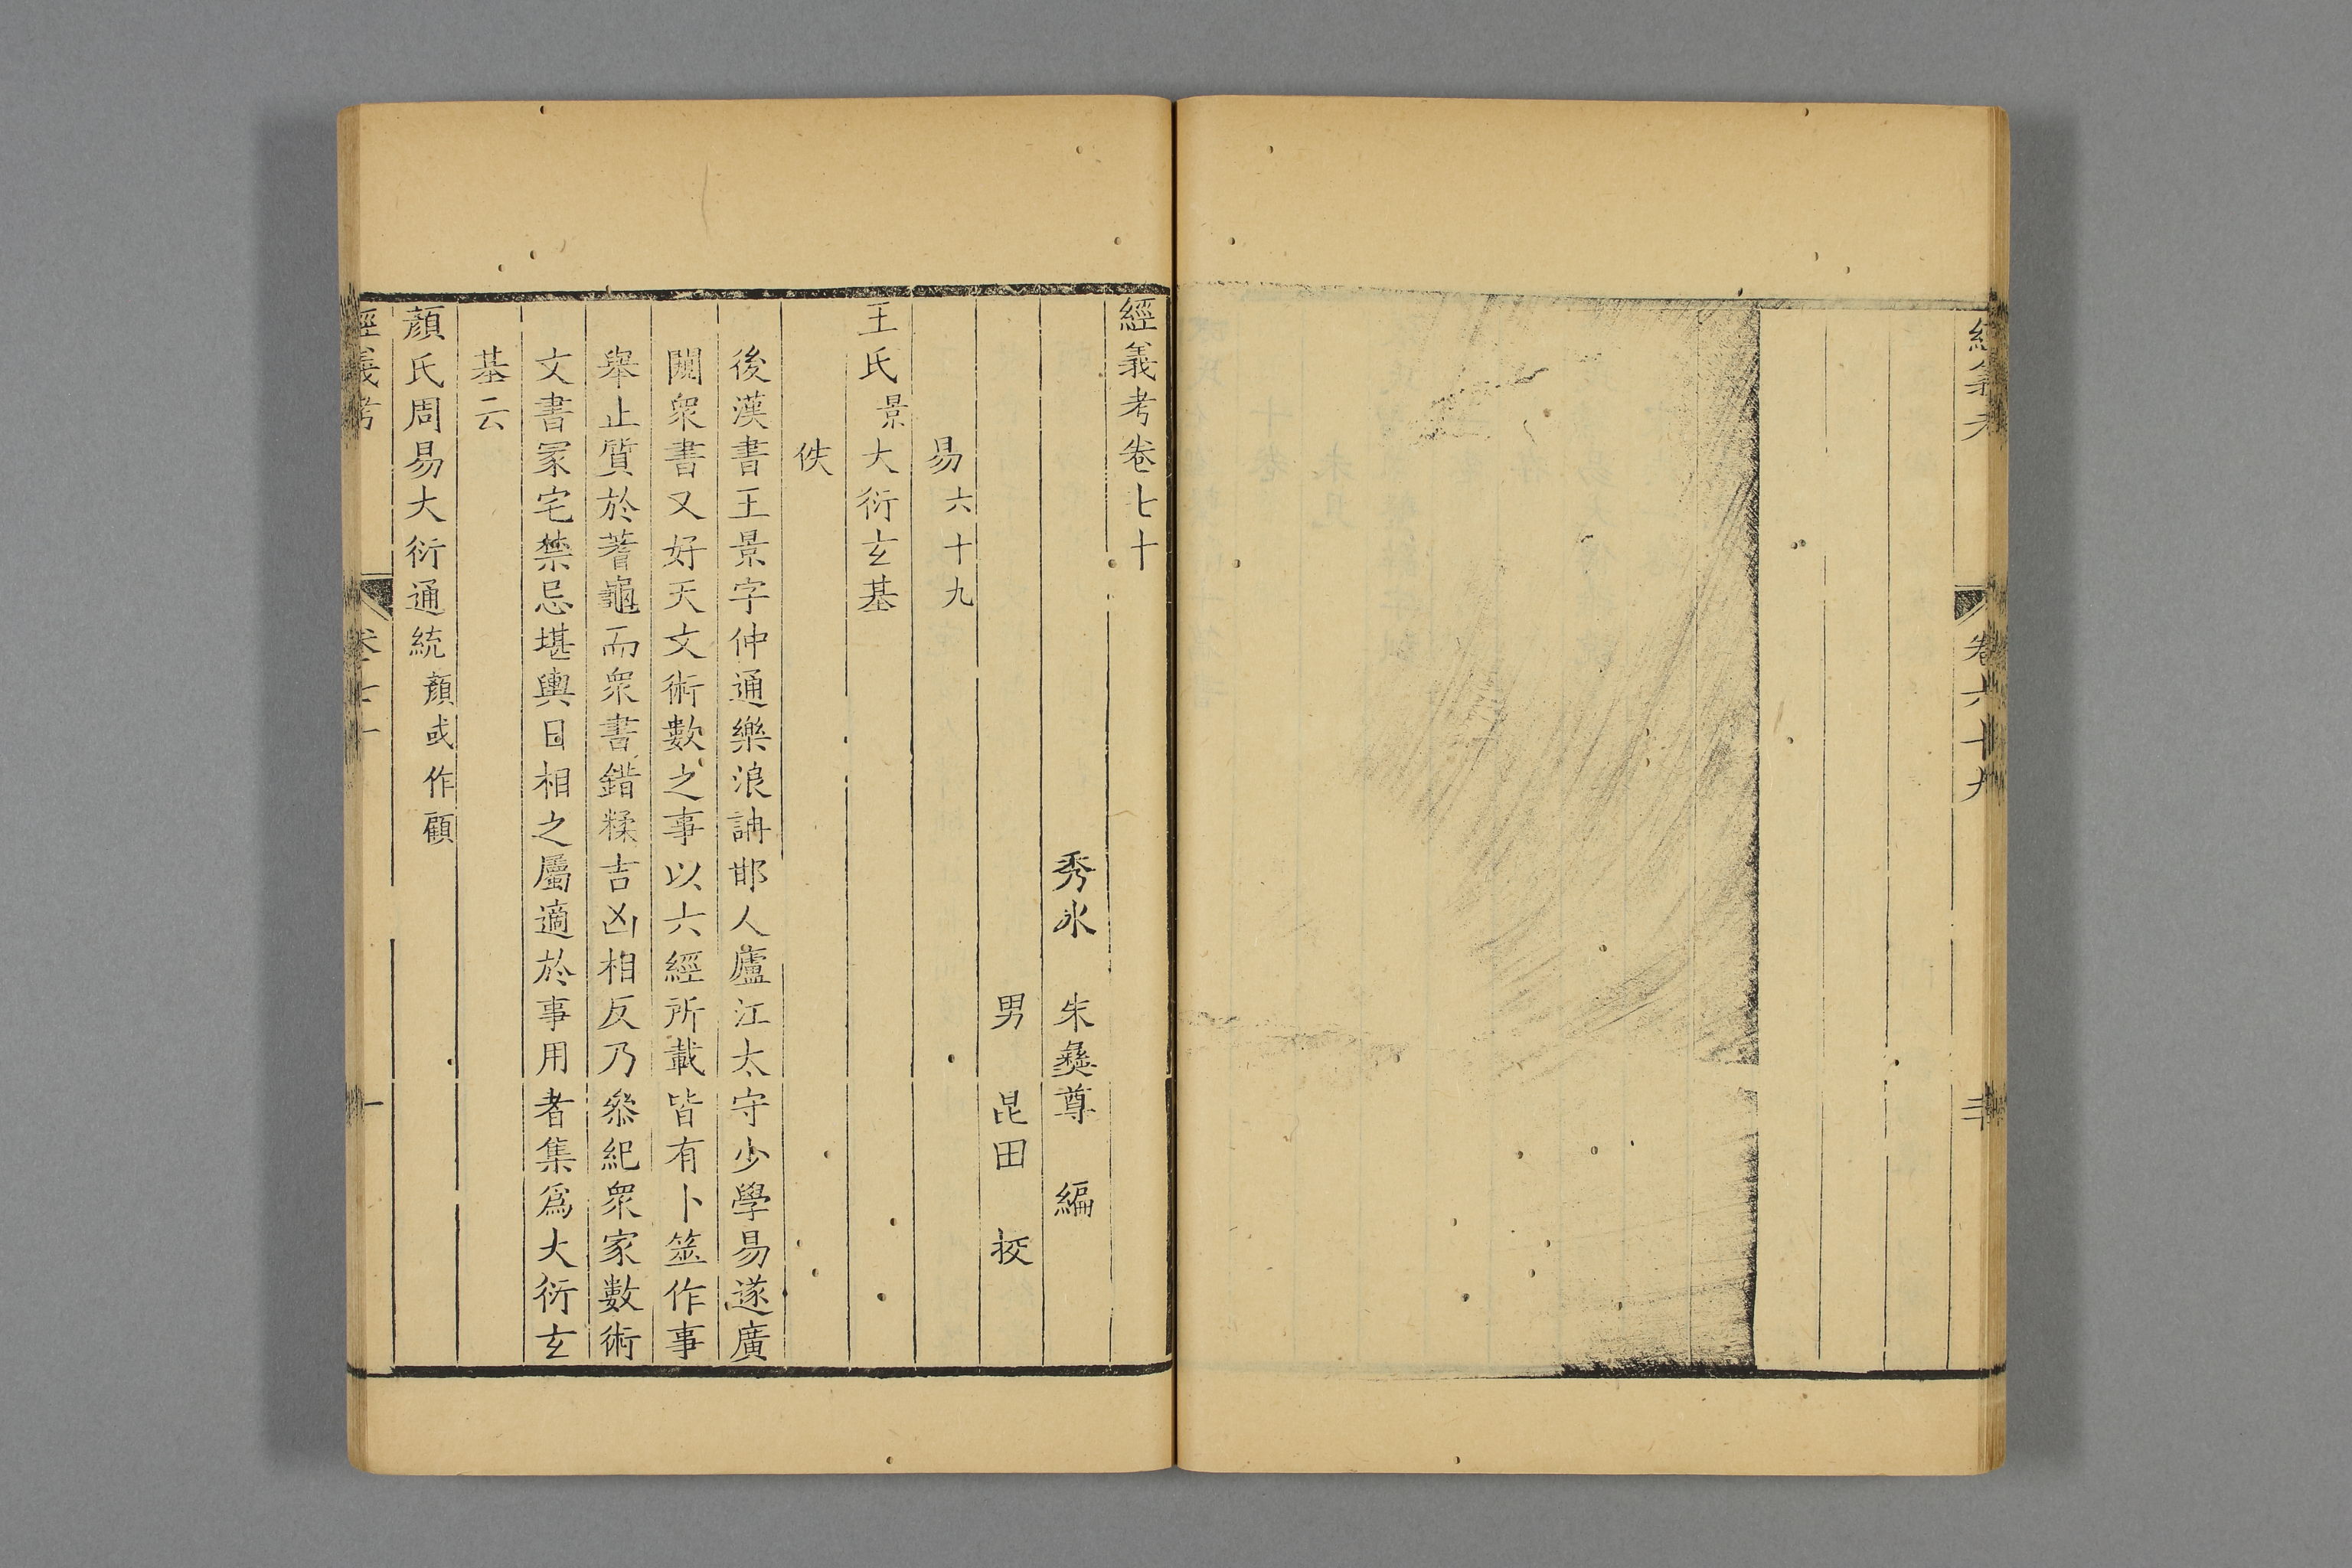 經義考
卷六十九
二十
經義考卷七十
秀水 朱彝尊 編
男 昆田 挍
易六十九
王氏景大衍玄基
佚
後漢書王景字仲通樂浪䛁邯人廬江太守少學易遂廣
闚衆書又好天文術數之事以六經所載皆有卜筮作事
舉止質於蓍龜而衆書錯糅吉凶相反乃叅紀衆家數術
文書冡宅禁忌堪輿日相之屬適於事用者集爲大衍玄
基云
顏氏周易大衍通統顏或作顧
經義考
卷七十
一